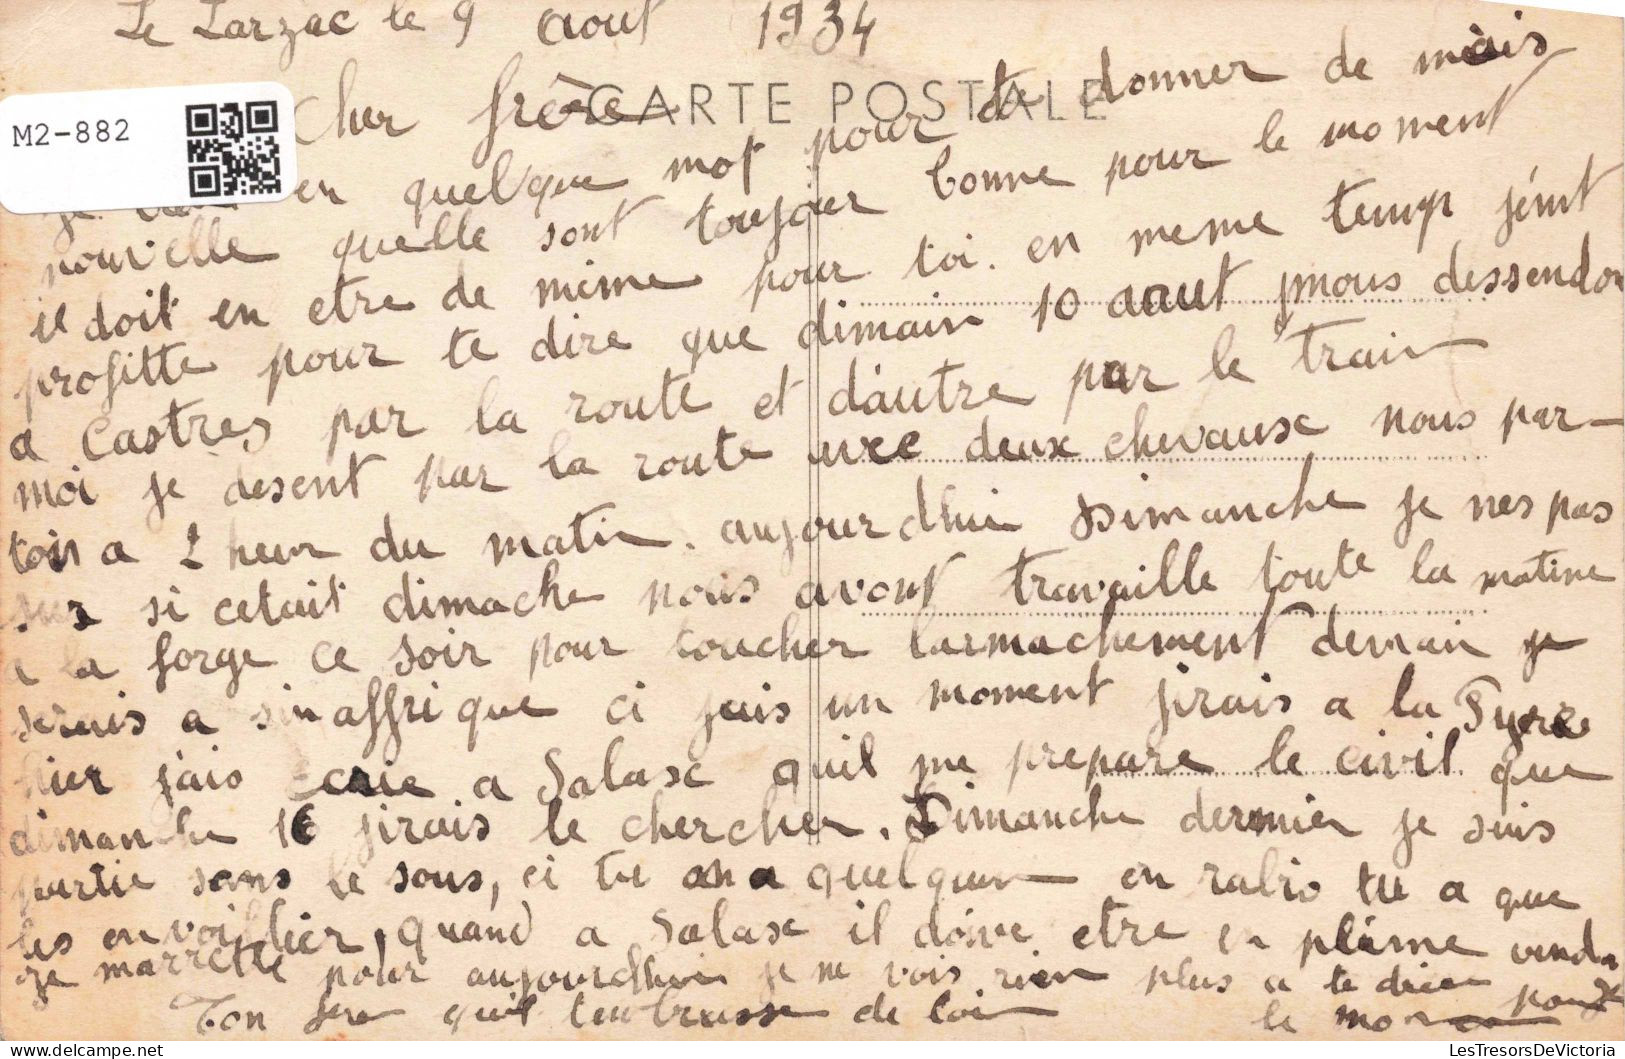 Le Larzac le 9 aout 1934
M2-882
CARTE POSTALE
Cher frère
je en quelque mot pour te donner de mais
nouvelle quelle sont toujour bonne pour le moment
il doit en etre de mème pour toi. en meme temp
profitte pour te dire que dimain 10 aout nous dessendon
a Castres par la route et d'autre par le train
moi je desent par la route avec deux chevause nous par-
tois a 2 heur du matin. aujourdhui Dimanche je nes pas
sur si cetait dimache nous avont travaille toute la matine
a la forge ce soir pour toucher larmachement demain je
serais a sinaffrique ci jais un moment jirais a la Fyere
hier jais ecrie a Salase quil me prepare le civil que
dimanche 16 jirais le chercher. Dimanche dernier je suis
partie sans le sous, ci tu ana quelquun en rabio tu a que
les envoillier, quand a Salase il doive etre en pleime venda
je marrette pour aujourdhui je ne vois rien plus a te dire pour
Ton frere quil tenbrasse de loin le moment
LesTresorsDeVictoria